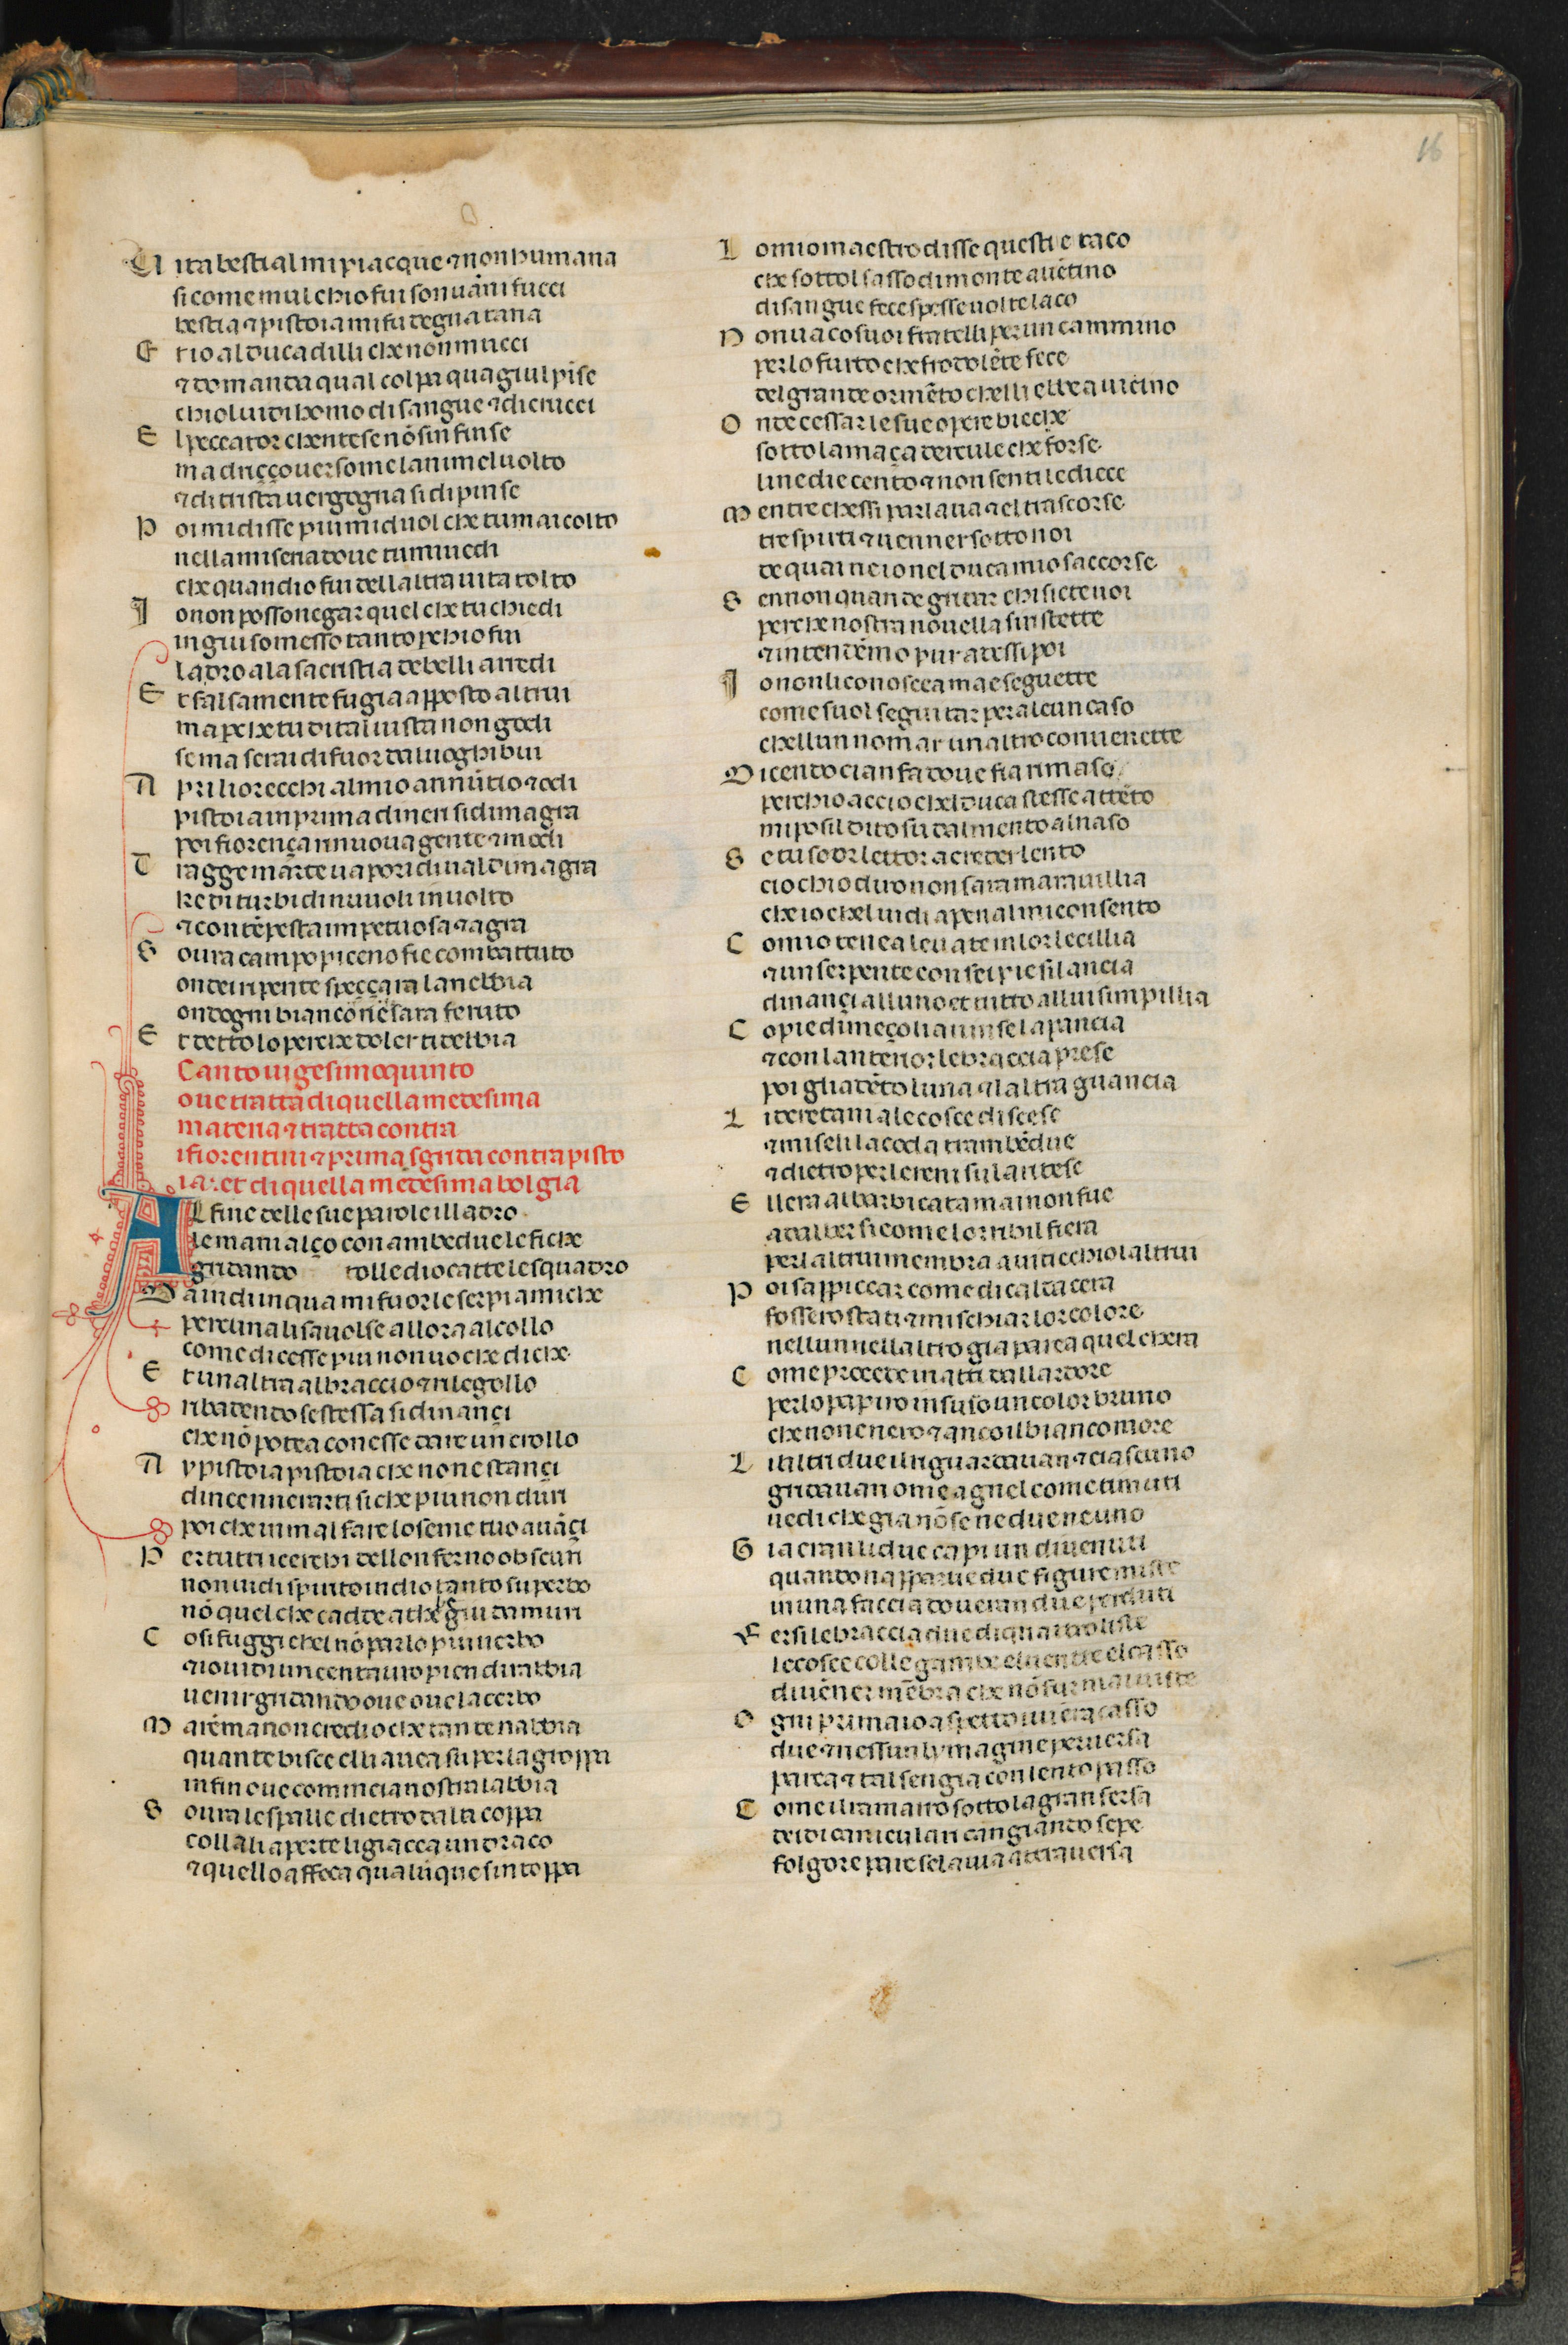 16
Vita bestial mi piacque ⁊ non humana
si come mul chio fui son uāni fucci
bestia ⁊ pistoia mi fu degna tana
E tio al duca dilli che non mucci
⁊ domanda qual colpa qua giul pise
chiol uidi homo di sangue ⁊ di crucci
E l peccator chentese nō sin finse
ma driççouer so me lanimel uolto
⁊ di trista uergogna si dipinse
P oi mi disse piu mi duol che tu mai colto
nella miseria doue tu mi uedi
che quandio fui dellaltra uita tolto
I o non posso negar quel che tu chiedi
in giu so messo tanto pchio fui
ladro a la sacristia de belli arredi
E t falsamente fu gia apposto altrui
ma pche tu di tal uista non godi
se ma serai di fuor da luoghi bui
A pri li orecchi al mio annūtio ⁊ odi
pistoia inprima di neri si dimagra
poi fiorença rinnuoua gente ⁊ modi
T ragge marte uapor di ual di magra
ke di turbidi nuuoli inuolto
⁊ con tēpesta impetuosa ⁊ agra
S oura campo piceno fie combattuto
ondei repente speççara la nebbia
ondogni bianco nē sara feruto
E t detto lo perche doler ti debbia
Canto uigesimoquinto
oue tratta di quella medesima
materia ⁊ tratta contra
i fiorentini ⁊ prima sgrida contra pisto
ia. et di quella medesima bolgia
AL fine delle sue parole il ladro
le mani alço con ambedue le fiche
gridando tolle dio ca tte le squadro
D a indi in qua mi fuor le serpi amiche
perchuna li sauolse allora al collo
come dicesse piu non uo che diche
E t unaltra al braccio ⁊ rilegollo
ribadendo se stessa si dinançi
che nō potea con esse dare un crollo
A y pistoia pistoia che non estançi
dincennerarti si che piu non duri
poi che in mal fare lo seme tuo auāçi
P er tutti i cerchi dellonferno obscuri
non uidi spirito in dio tanto superbo
nō quel che cadde athe giu da muri
C osi fuggi chel nō parlo piu uerbo
⁊ io uidi un centauro pien di rabbia
uenir gridando oue oue lacerbo
M arēma non credio che tante nabbia
quante bisce elli auea su per la groppa
infin oue comincia nostra labbia
S oura le spalle dietro da la coppa
coll ali aperte li giacea un draco
⁊ quello affoca qualūque sintoppa
L o mio maestro disse questi e caco
che sottol sasso di monte auētino
di sangue fece spesse uolte laco
N on ua co suoi fratelli per un cammino
per lo furto che frodolēte fece
del grande ormēto chelli ebbe a uicino
O nde cessar le sue opere biece
sotto la maça dercule che forse
li ne die cento ⁊ non senti le diece
M entre chessi parlaua ⁊ el trascorse
tre spiriti ⁊ uenner sotto noi
de quai ne io nel duca mio saccorse
S ennon quando gridar chi siete uoi
perche nostra nouella si ristette
⁊ intendēmo pur ad essi poi
I o non li conoscea ma e seguette
come suol seguitar per alcun caso
chellun nomar un altro conuenette
D icendo cianfa doue fia rimaso
perchio accio chel duca stesse attēto
mi posil dito su dal mento al naso
S e tu se or lettor a creder lento
cio chio diro non sara marauillia
che io chel uidi a pena il mi consento
C omio tenea leuate in lor le cillia
⁊ un serpente con sei pie si lancia
dinançi alluno et tutto allui simpillia
C o pie di meço li auuinse la pancia
⁊ con lanterior le braccia prese
poi gliadēto luna ⁊ laltra guancia
L i deretani a le cosce discese
⁊ miseli la coda tramēdue
⁊ dietro per le reni su la ritese
E llera abarbicata mai non fue
ad alber si come lorribil fiera
per laltrui membra auiticchio laltrui
P oi sappiccar come di calda cera
fossero stati ⁊ mischiar lor colore
nellun nellaltro gia parea quel chera
C ome procede inātti dallardore
per lo papiro in suso un color bruno
che non e nero ⁊ ancoil bianco more
L i altri due il riguardauan ⁊ ciascuno
gridauan ome agnel come ti muti
uedi che gia nō se ne due ne uno
G ia eran li due capi un diuenuti
quando napparue due figure miste
in una faccia doueran due perduti
F ersi le braccia due di quattro liste
le cosce colle gambe el uentre el casso
diuēner mēbra che nō fur mai uiste
O gni primaio aspetto iui era casso
due ⁊ nessun lymagine peruersa
parea ⁊ tal sen gia con lento passo
C ome il ramarro sotto la gran fersa
dei di canicular cangiando sepe
folgore pare se la uia attrauersa